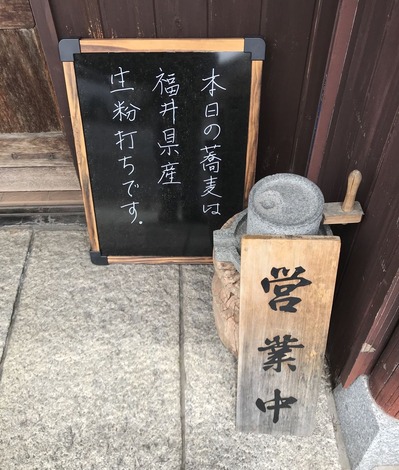 本日の蕎麦は
福井県産
生粉打ちです.
営業中